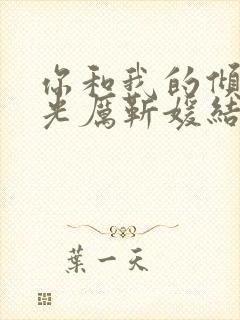 你和我的傾
光厲靳媛結
葉一天